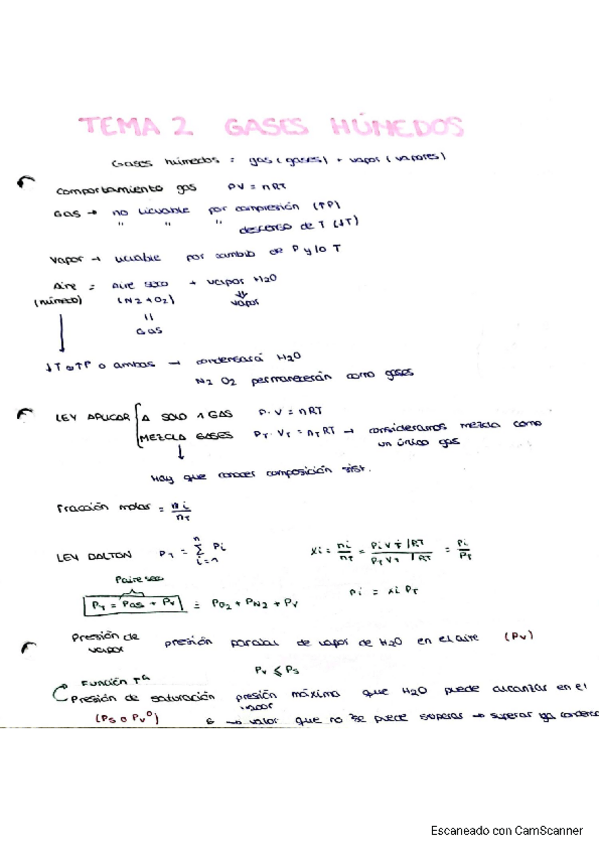 TEMA 2 GASES HÚMEDOS
Gases húmedos = gas (gases) + vapor (vapores)
Comportamiento gas PV = nRT
Gas → no licuable por compresión (↑P)
" " " descenso de T (↓T)
Vapor → licuable por cambio de P y/o T
Aire = Aire seco + vapor H2O
(húmedo) (N2 + O2) ⇓
vapor
||
Gas
↓T o ↑P o ambas → condensará H2O
N2 O2 permanecerán como gases
LEY APLICAR A SOLO 1 GAS P·V = nRT
MEZCLA GASES PT·VT = nT RT → consideramos mezcla como
un único gas
↓
Hay que conocer composición sist.
Fracción molar = ni/nT
LEY DALTON PT = Σ(i=1, n) Pi xi = ni/nT = Pi VT/RT / PT VT/RT = Pi/PT
Paire seco
PT = Pas + Pv = PO2 + PN2 + Pv Pi = xi PT
Presión de vapor presión parcial de vapor de H2O en el aire (Pv)
Función Tª Pv ≤ Ps
Presión de saturación presión máxima que H2O puede alcanzar en el
vapor
(Ps o Pv⁰) → valor que no se puede superar → superar ya
Escaneado con CamScanner